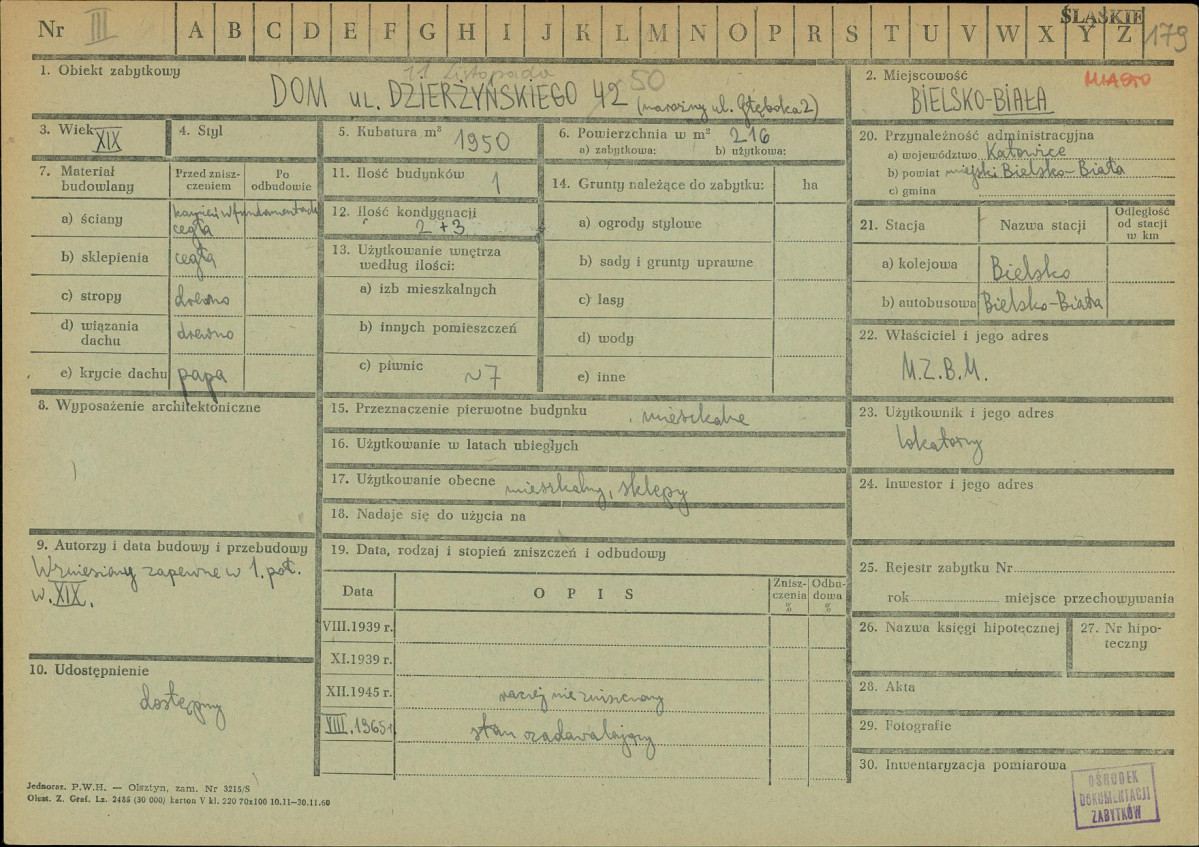 Nr III A B C D E F G H I J K L M N O P R S T U V W X Y Z 179
ŚLĄSKIE
1. Obiekt zabytkowy
11 Listopada 50
DOM ul. DZIERŻYŃSKIEGO 42 (narożny ul. Głęboka 2)
2. Miejscowość
MIASTO
BIELSKO-BIAŁA
3. Wiek XIX
4. Styl
5. Kubatura m³ 1950
6. Powierzchnia w m² 216
a) zabytkowa: b) użytkowa:
7. Materiał budowlany
Przed zniszczeniem
Po odbudowie
a) ściany kamień w fundamentach cegła
b) sklepienia cegła
c) stropy drewno
d) wiązania dachu drewno
e) krycie dachu papa
8. Wyposażenie architektoniczne
9. Autorzy i data budowy i przebudowy
Wzniesiony zapewne w 1. poł.
w. XIX.
10. Udostępnienie
dostępny
11. Ilość budynków 1
12. Ilość kondygnacji
2 + 3
13. Użytkowanie wnętrza według ilości:
a) izb mieszkalnych
b) innych pomieszczeń
c) piwnic ~ 7
14. Grunty należące do zabytku: ha
a) ogrody stylowe
b) sady i grunty uprawne
c) lasy
d) wody
e) inne
15. Przeznaczenie pierwotne budynku mieszkalne
16. Użytkowanie w latach ubiegłych
17. Użytkowanie obecne mieszkalny, sklepy
18. Nadaje się do użycia na
19. Data, rodzaj i stopień zniszczeń i odbudowy
Data OPIS Zniszczenia % Odbudowa %
VIII.1939 r.
XI.1939 r.
XII.1945 r. raczej nie zniszczony
VIII.1965 r. stan zadawalający
20. Przynależność administracyjna
a) województwo Katowice
b) powiat miejski Bielsko-Biała
c) gmina
21. Stacja Nazwa stacji Odległość od stacji w km
a) kolejowa Bielsko
b) autobusowa Bielsko-Biała
22. Właściciel i jego adres
M.Z.B.M.
23. Użytkownik i jego adres
lokatorzy
24. Inwestor i jego adres
25. Rejestr zabytku Nr
rok miejsce przechowywania
26. Nazwa księgi hipotecznej
27. Nr hipoteczny
28. Akta
29. Fotografie
30. Inwentaryzacja pomiarowa
OŚRODEK
DOKUMENTACJI
ZABYTKÓW
Jednoraz. P.W.H. — Olsztyn, zam. Nr 3215/S
Olszt. Z. Graf. Lz. 2485 (30 000) karton V kl. 220 70x100 10.11-30.11.60